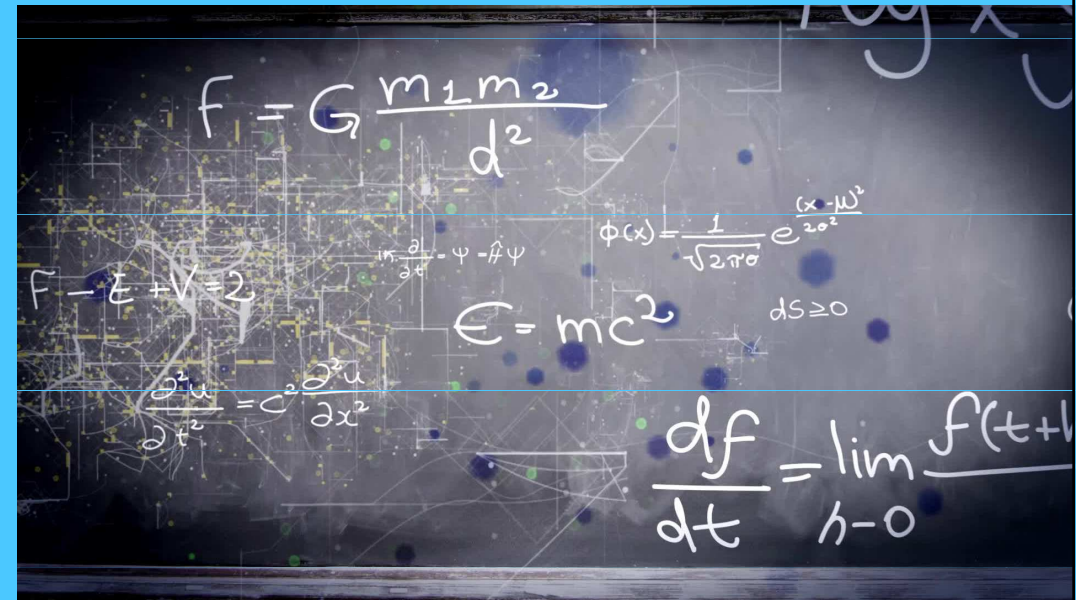 log x y
F = G m1m2/d²
Φ(x) = 1/√2πσ e^(x-μ)²/2σ²
∂/∂t = Ψ = ĤΨ
F - E + V = 2
E = mc²
dS ≥ 0
∂²u/∂t² = c² ∂²u/∂x²
df/dt = lim h-0 f(t+h